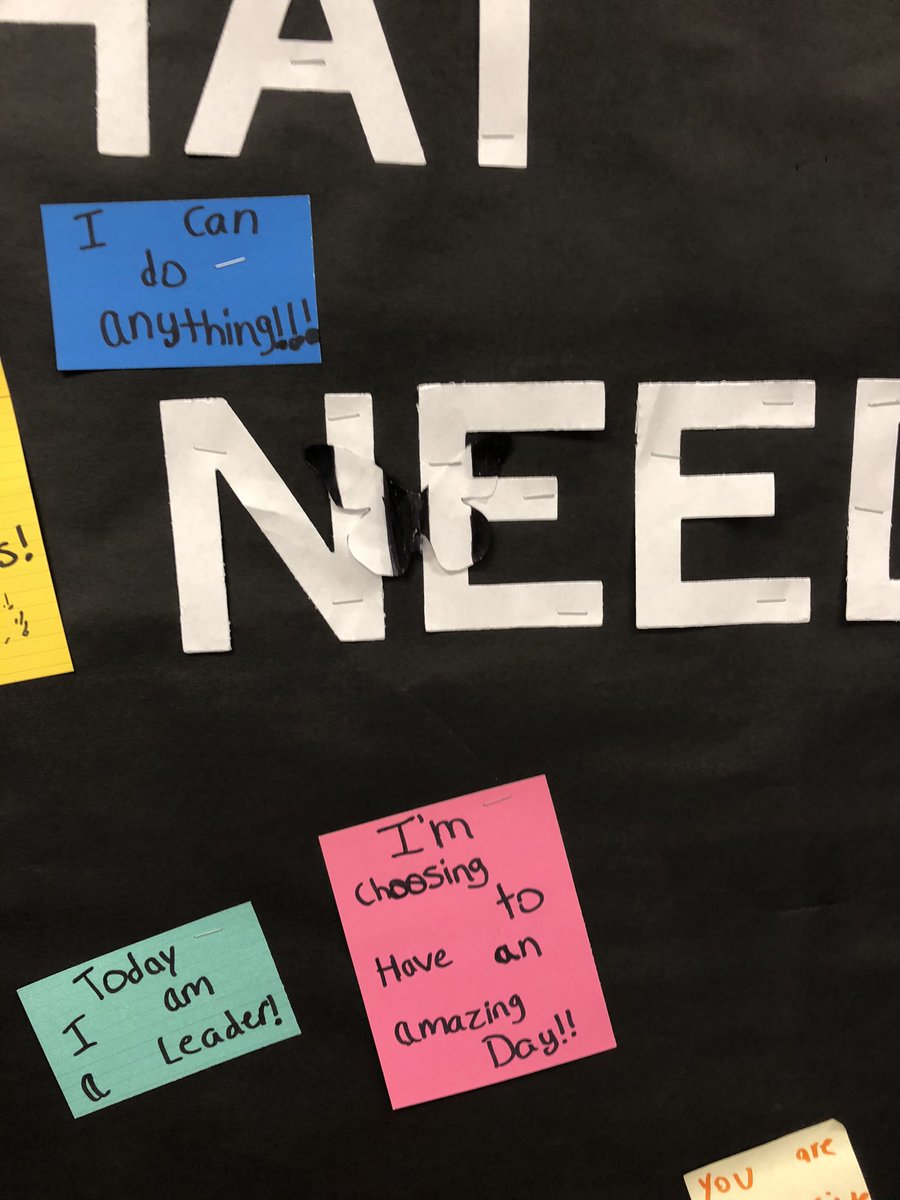 HAT
I can
do
anything!!!
NEED
s!
I'm
choosing
to
Have an
amazing
Day!!
Today
I am
a Leader!
You are